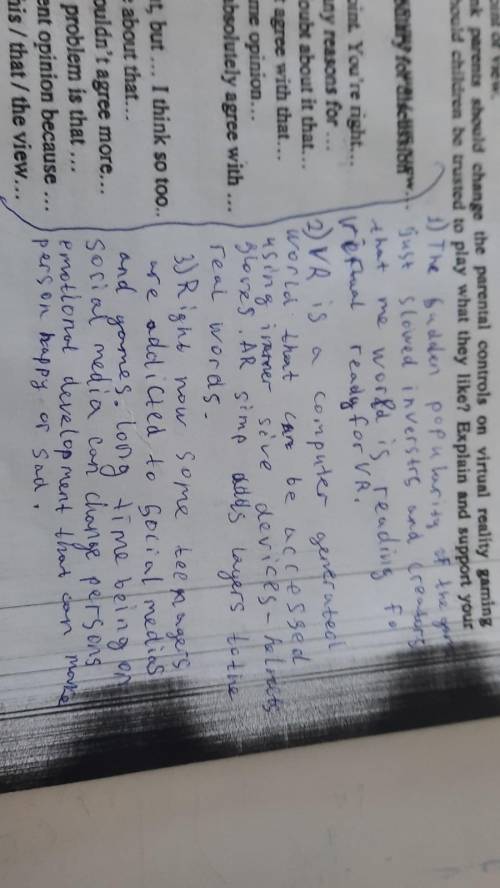 of view.
nk parents should change the parental controls on virtual reality gaming
hould children be trusted to play what they like? Explain and support your
w...
oint. You're right...
any reasons for ...
oubt about it that...
t agree with that...
me opinion...
absolutely agree with ...
t, but ... I think so too..
e about that...
ouldn't agree more...
problem is that ...
ent opinion because ...
his / that / the view...
1) The sudden popularity of the
just slowed inverstrs and creators
that me world is reading fo
virtual ready for VR.
2) VR is a computer generated
world that can be accessed
using immer sive devices - helmets
gloves. AR simp adds layers to the
real words.
3) Right now some teenagers
are addicted to social medias
and games. long time being on
Social media can change persons
emotional development that can make
person happy or sad.